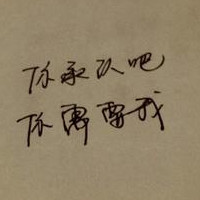 你承认吧
你需要我